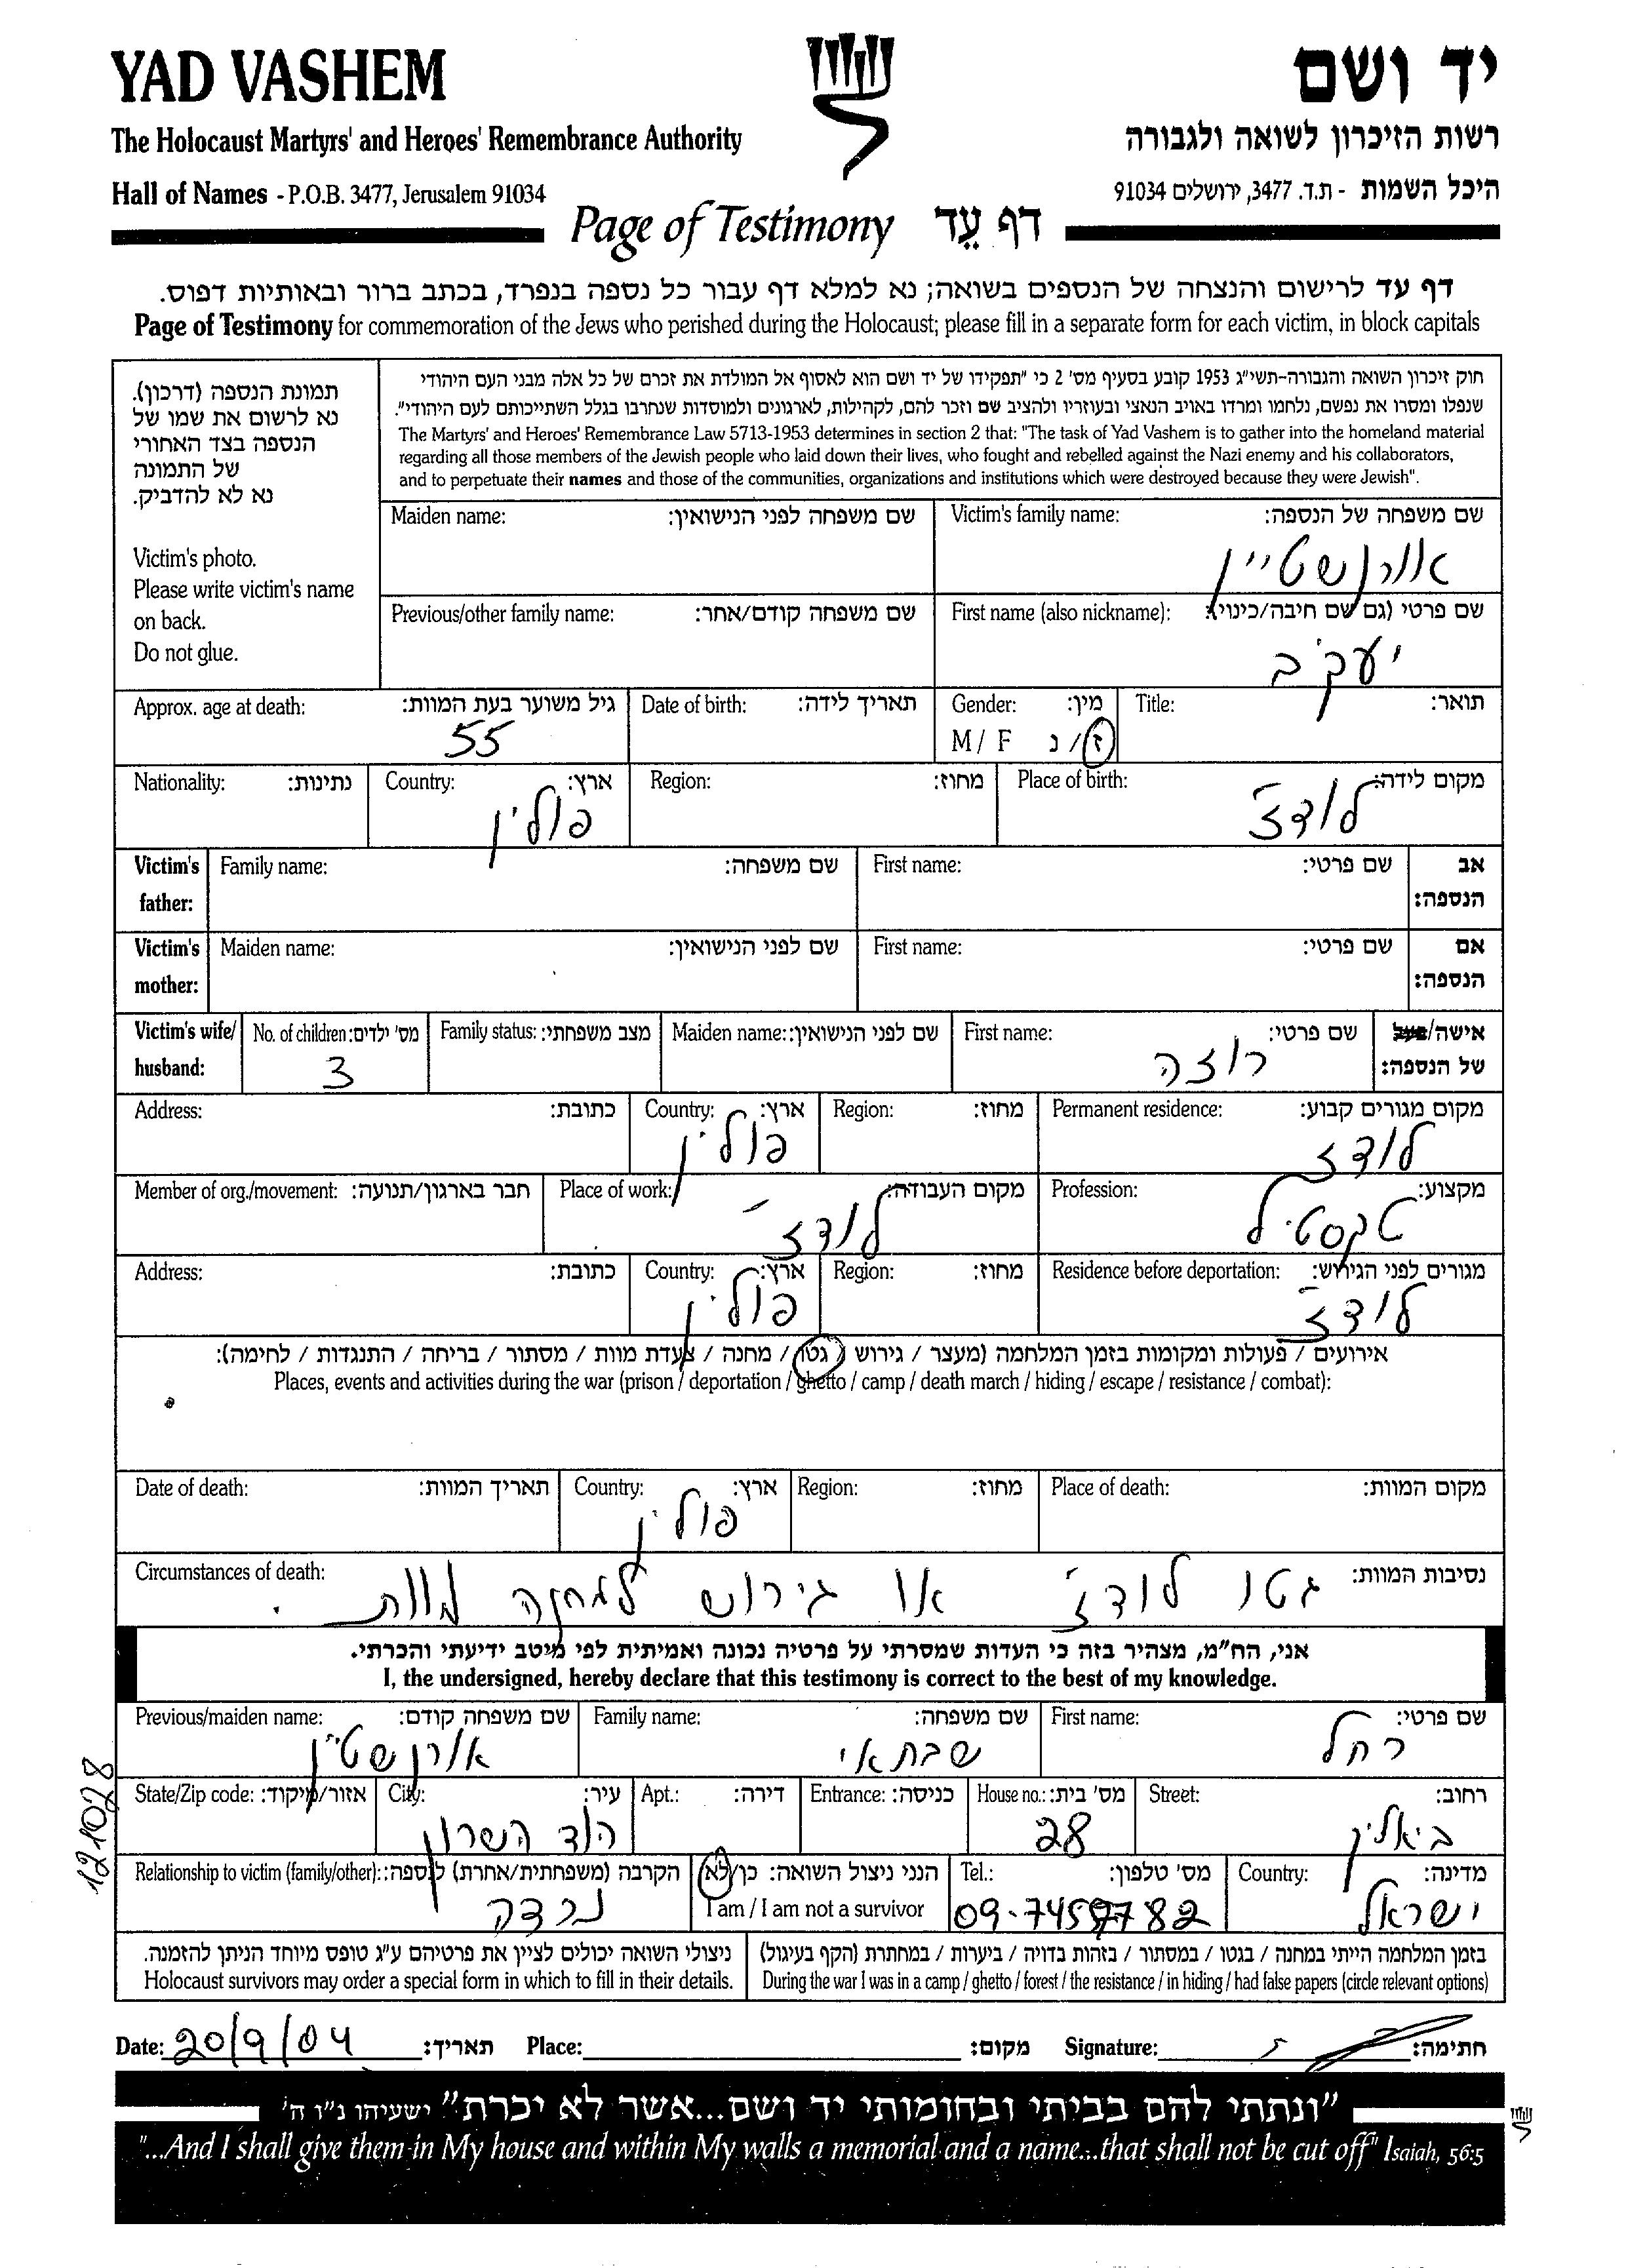 YAD VASHEM
יד ושם
The Holocaust Martyrs' and Heroes' Remembrance Authority
רשות הזיכרון לשואה ולגבורה
Hall of Names - P.O.B. 3477, Jerusalem 91034
היכל השמות - ת.ד. 3477, ירושלים 91034
Page of Testimony דף עֵד
דף עד לרישום והנצחה של הנספים בשואה; נא למלא דף עבור כל נספה בנפרד, בכתב ברור ובאותיות דפוס.
Page of Testimony for commemoration of the Jews who perished during the Holocaust; please fill in a separate form for each victim, in block capitals
תמונת הנספה (דרכון).
נא לרשום את שמו של
הנספה בצד האחורי
של התמונה
נא לא להדביק.
Victim's photo.
Please write victim's name
on back.
Do not glue.
חוק זיכרון השואה והגבורה-תשי"ג 1953 קובע בסעיף מס' 2 כי "תפקידו של יד ושם הוא לאסוף אל המולדת את זכרם של כל אלה מבני העם היהודי
שנפלו ומסרו את נפשם, נלחמו ומרדו באויב הנאצי ובעוזריו ולהציב שם וזכר להם, לקהילות, לארגונים ולמוסדות שנחרבו בגלל השתייכותם לעם היהודי".
The Martyrs' and Heroes' Remembrance Law 5713-1953 determines in section 2 that: "The task of Yad Vashem is to gather into the homeland material
regarding all those members of the Jewish people who laid down their lives, who fought and rebelled against the Nazi enemy and his collaborators,
and to perpetuate their names and those of the communities, organizations and institutions which were destroyed because they were Jewish".
Victim's family name: שם משפחה של הנספה:
אורנשטיין
Maiden name: שם משפחה לפני הנישואין:
First name (also nickname): שם פרטי (גם שם חיבה/כינוי):
יעקב
Previous/other family name: שם משפחה קודם/אחר:
Title: תואר:
Gender: מין:
M / F ז / נ
Date of birth: תאריך לידה:
Approx. age at death: גיל משוער בעת המוות:
55
Place of birth: מקום לידה:
לודז'
Region: מחוז:
Country: ארץ:
פולין
Nationality: נתינות:
Victim's father: אב הנספה:
First name: שם פרטי:
Family name: שם משפחה:
Victim's mother: אם הנספה:
First name: שם פרטי:
Maiden name: שם לפני הנישואין:
Victim's wife/husband: אישה/בעל של הנספה:
First name: שם פרטי:
רוזה
Maiden name: שם לפני הנישואין:
Family status: מצב משפחתי:
No. of children: מס' ילדים:
3
Permanent residence: מקום מגורים קבוע:
לודז
Region: מחוז:
Country: ארץ:
פולין
Address: כתובת:
Profession: מקצוע:
טקסטיל
Place of work: מקום העבודה:
לודז'
Member of org./movement: חבר בארגון/תנועה:
Residence before deportation: מגורים לפני הגירוש:
לודז'
Region: מחוז:
Country: ארץ:
פולין
Address: כתובת:
אירועים / פעולות ומקומות בזמן המלחמה (מעצר / גירוש / גטו / מחנה / צעדת מוות / מסתור / בריחה / התנגדות / לחימה):
Places, events and activities during the war (prison / deportation / ghetto / camp / death march / hiding / escape / resistance / combat):
Place of death: מקום המוות:
Region: מחוז:
Country: ארץ:
פולין
Date of death: תאריך המוות:
Circumstances of death: נסיבות המוות:
גטו לודז' או גירוש למחנה מוות.
אני, הח"מ, מצהיר בזה כי העדות שמסרתי על פרטיה נכונה ואמיתית לפי מיטב ידיעתי והכרתי.
I, the undersigned, hereby declare that this testimony is correct to the best of my knowledge.
First name: שם פרטי:
רחל
Family name: שם משפחה:
שבתאי
Previous/maiden name: שם משפחה קודם:
אורנשטיין
Street: רחוב:
ביאליק
House no.: מס' בית:
28
Entrance: כניסה:
Apt.: דירה:
City: עיר:
הוד השרון
State/Zip code: אזור/מיקוד:
121028
Country: מדינה:
ישראל
Tel.: מס' טלפון:
09-7459782
הנני ניצול השואה: כן/לא
I am / I am not a survivor
Relationship to victim (family/other): הקרבה (משפחתית/אחרת) לנספה:
נכדה
בזמן המלחמה הייתי במחנה / בגטו / במסתור / בזהות בדויה / ביערות / במחתרת (הקף בעיגול)
During the war I was in a camp / ghetto / forest / the resistance / in hiding / had false papers (circle relevant options)
ניצולי השואה יכולים לציין את פרטיהם ע"ג טופס מיוחד הניתן להזמנה.
Holocaust survivors may order a special form in which to fill in their details.
Date: 20/9/04 תאריך: Place: מקום: Signature: חתימה:
"ונתתי להם בביתי ובחומותי יד ושם...אשר לא יכרת" ישעיהו נ"ו ה'
"...And I shall give them in My house and within My walls a memorial and a name...that shall not be cut off" Isaiah, 56:5